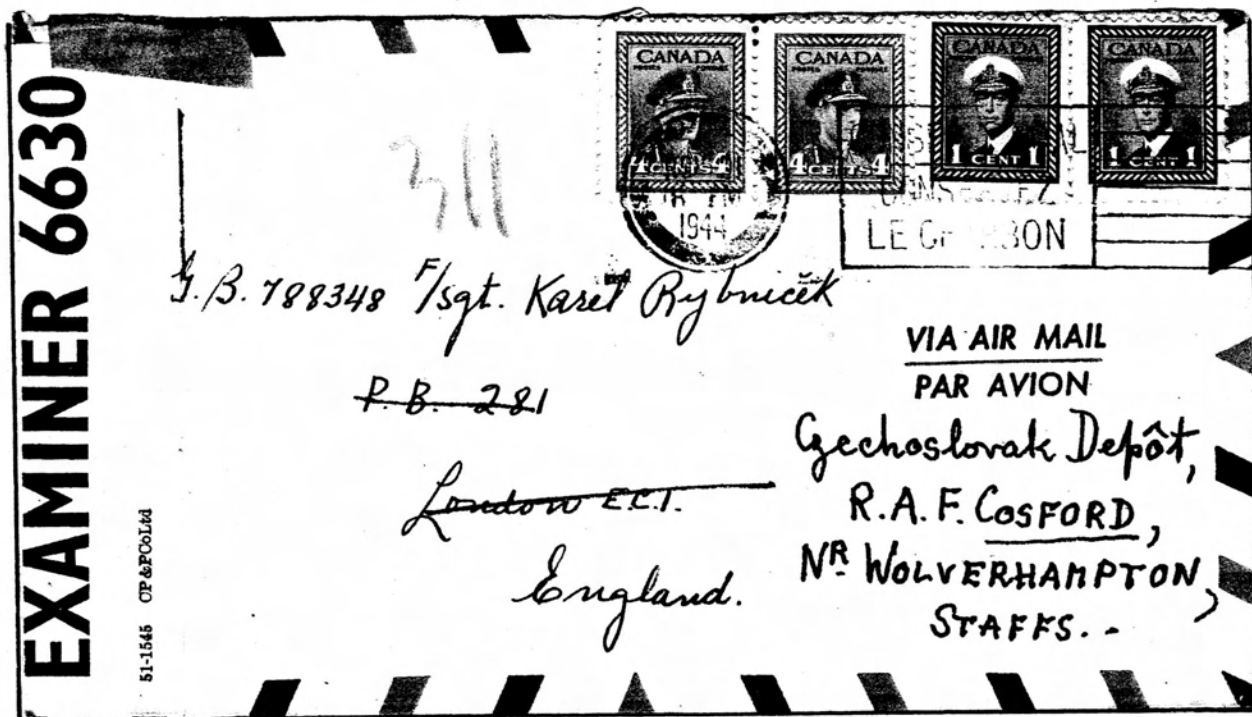 EXAMINER 6630
51-1545 CP&PCoLtd
CANADA CANADA CANADA CANADA
POSTES POSTAGE POSTES POSTAGE
4 CENTS 4 4 CENTS 4 1 CENT 1 1 CENT 1
PM
1944
LE CHARBON
311
G.B. 788348 F/sgt. Karel Rybnicěk
P.B. 281
London E.C.1.
England.
VIA AIR MAIL
PAR AVION
Czechoslovak Depôt,
R.A.F. COSFORD,
NR WOLVERHAMPTON,
STAFFS. -